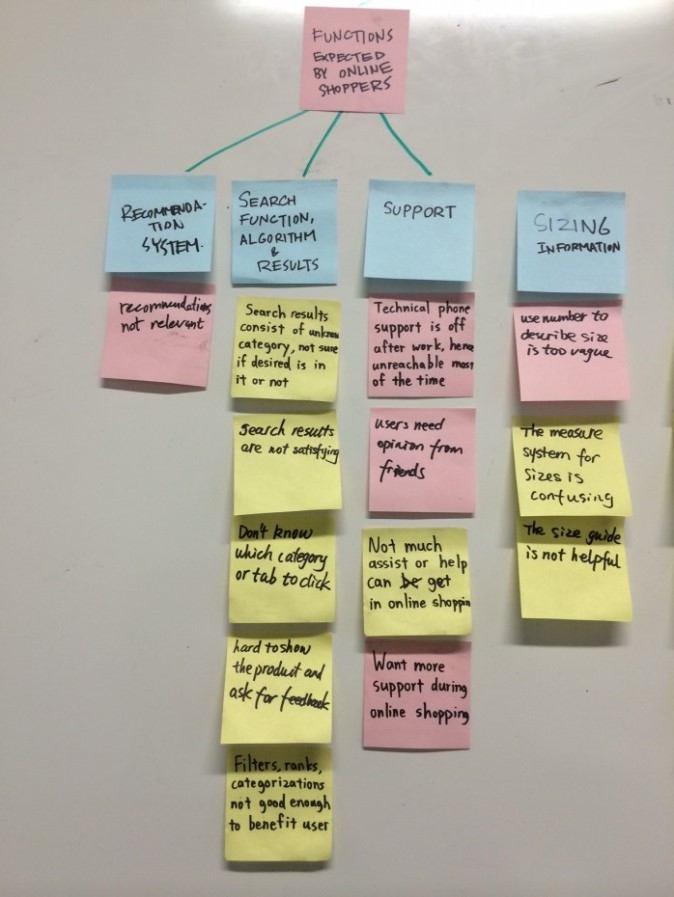 FUNCTIONS
EXPECTED
BY ONLINE
SHOPPERS
RECOMMENDA-
TION
SYSTEM.
recommendations
not relevant
SEARCH
FUNCTION,
ALGORITHM
&
RESULTS
Search results
consist of unknow
category, not sure
if desired is in
it or not
Search results
are not satisfying
Don't know
which category
or tab to click
hard to show
the product and
ask for feedback
Filters, ranks,
categorizations
not good enough
to benefit user
SUPPORT
Technical phone
support is off
after work, hence
unreachable most
of the time
users need
opinion from
friends
Not much
assist or help
can be get
in online shoppin
Want more
support during
online shopping
SIZING
INFORMATION
use number to
describe size
is too vague
The measure
system for
sizes is
confusing
The size guide
is not helpful